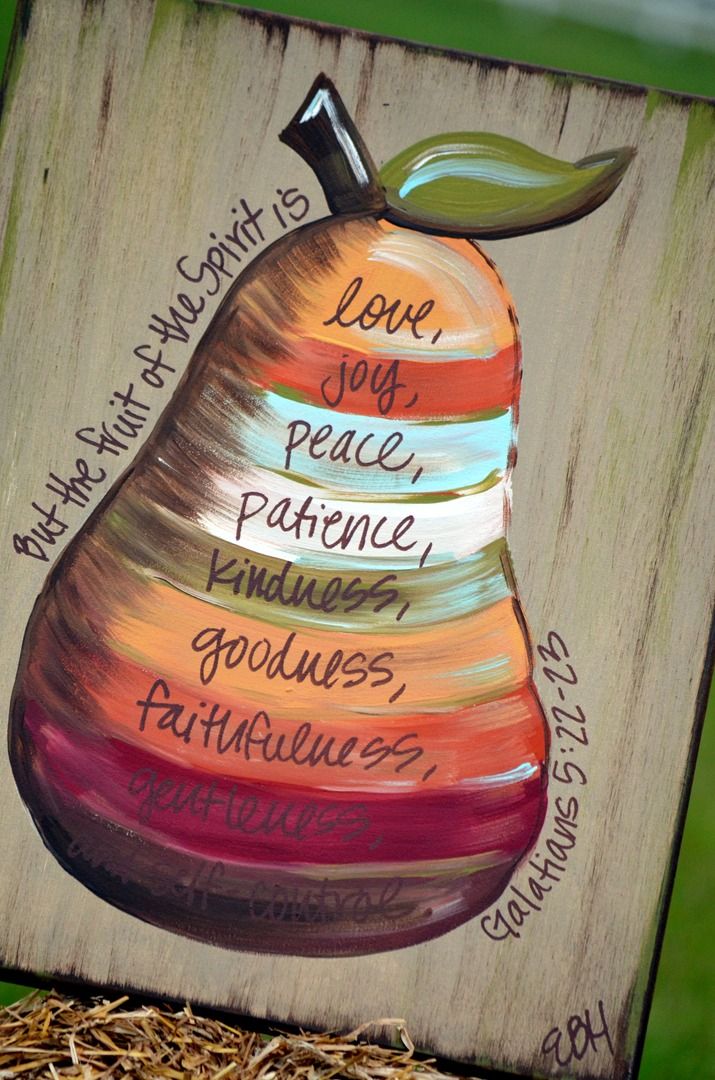 But the fruit of the Spirit is
love,
joy,
peace,
patience,
kindness,
goodness,
faithfulness,
gentleness,
and self-control.
Galatians 5:22-23
EBH